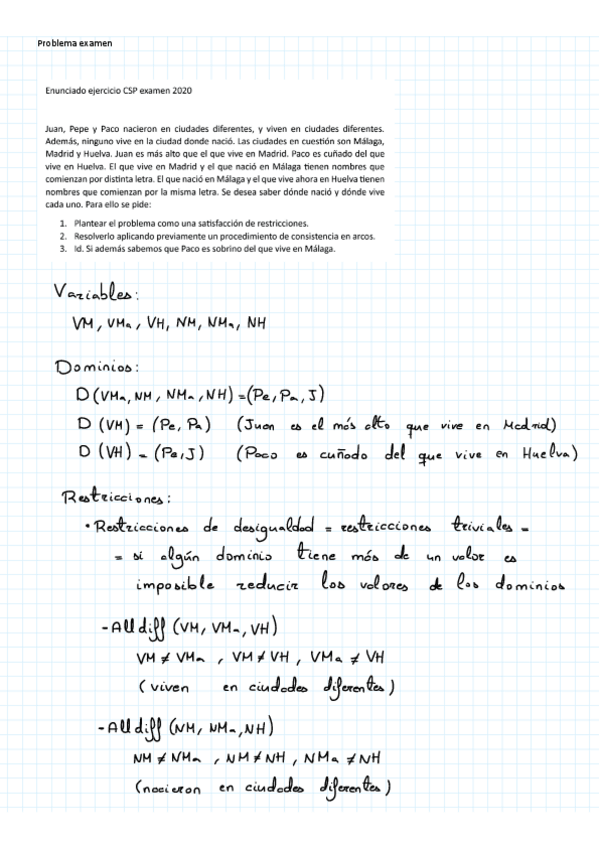 Problema examen
Enunciado ejercicio CSP examen 2020
Juan, Pepe y Paco nacieron en ciudades diferentes, y viven en ciudades diferentes.
Además, ninguno vive en la ciudad donde nació. Las ciudades en cuestión son Málaga,
Madrid y Huelva. Juan es más alto que el que vive en Madrid. Paco es cuñado del que
vive en Huelva. El que vive en Madrid y el que nació en Málaga tienen nombres que
comienzan por distinta letra. El que nació en Málaga y el que vive ahora en Huelva tienen
nombres que comienzan por la misma letra. Se desea saber dónde nació y dónde vive
cada uno. Para ello se pide:
1. Plantear el problema como una satisfacción de restricciones.
2. Resolverlo aplicando previamente un procedimiento de consistencia en arcos.
3. Id. Si además sabemos que Paco es sobrino del que vive en Málaga.
Variables:
VM, VMa, VH, NM, NMa, NH
Dominios:
D (VMa, NM, NMa, NH) = (Pe, Pa, J)
D (VM) = (Pe, Pa) (Juan es el más alto que vive en Madrid)
D (VH) = (Pe, J) (Paco es cuñado del que vive en Huelva)
Restricciones:
• Restricciones de desigualdad = restricciones triviales =
= si algún dominio tiene más de un valor es
imposible reducir los valores de los dominios
- All diff (VM, VMa, VH)
VM ≠ VMa , VM ≠ VH , VMa ≠ VH
( viven en ciudades diferentes )
- All diff (NM, NMa, NH)
NM ≠ NMa , NM ≠ NH , NMa ≠ NH
(nacieron en ciudades diferentes)